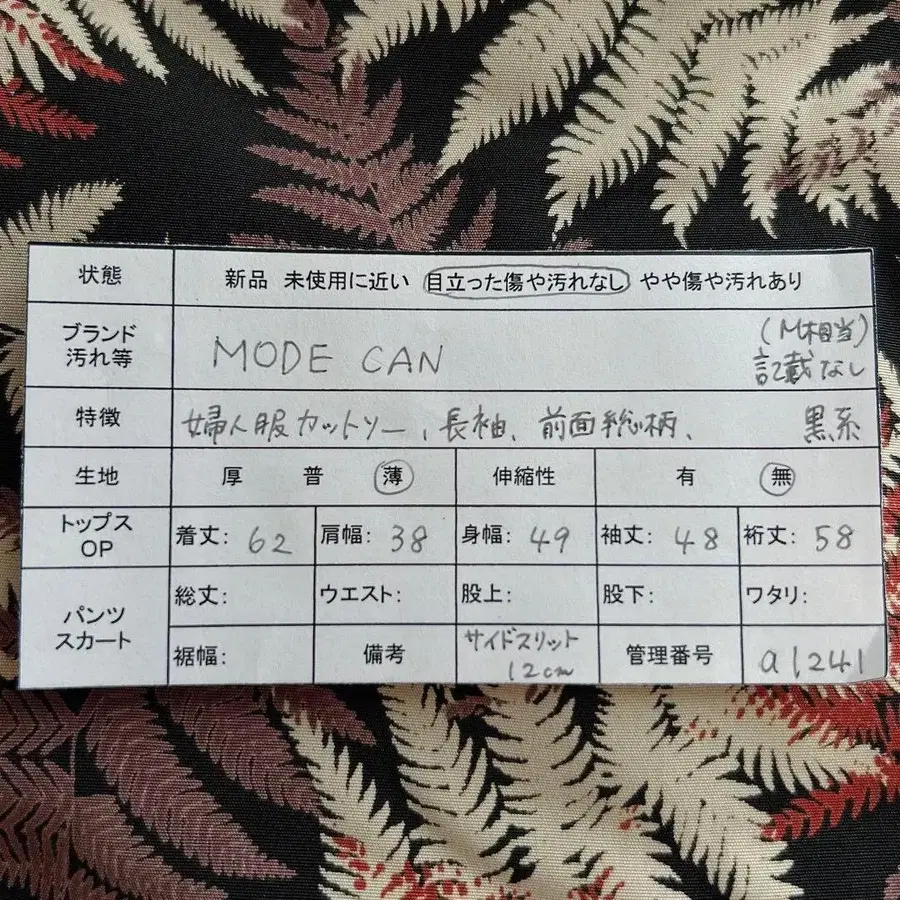 状態 新品 未使用に近い 目立った傷や汚れなし やや傷や汚れあり
ブランド
汚れ等 MODE CAN (M相当)
記載なし
特徴 婦人服カットソー、長袖、前面総柄、 黒系
生地 厚 普 薄 伸縮性 有 無
トップス
OP 着丈: 62 肩幅: 38 身幅: 49 袖丈: 48 裄丈: 58
パンツ
スカート 総丈: ウエスト: 股上: 股下: ワタリ:
裾幅: 備考 サイドスリット
12cm 管理番号 a1241